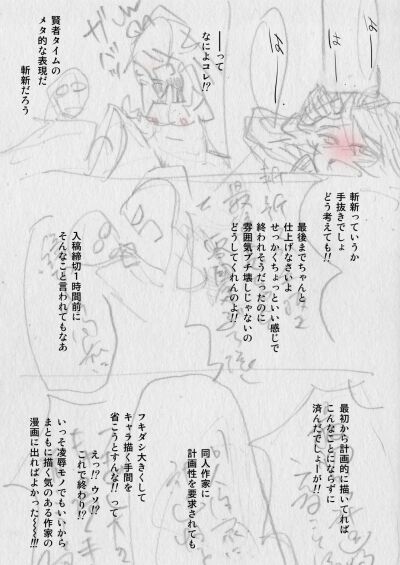 はー
はー
はー
――って
なによコレ!?
賢者タイムの
メタ的な表現だ
斬新だろう
斬新っていうか
手抜きでしょ
どう考えても!!
最後までちゃんと
仕上げなさいよ
せっかくちょっといい感じで
終われそうだったのに
雰囲気ブチ壊しじゃないの
どうしてくれんのよ!!
入稿締切1時間前に
そんなこと言われてもなあ
最初から計画的に描いてれば
こんなことにならずに
済んだでしょーが!!
同人作家に
計画性を要求されても
フキダシ大きくして
キャラ描く手間を
省こうとすんな!!って
えっ!?ウソ!?
これで終わり!?
いっそ凌辱モノでもいいから
まともに描く気のある作家の
漫画に出ればよかった~~!!!